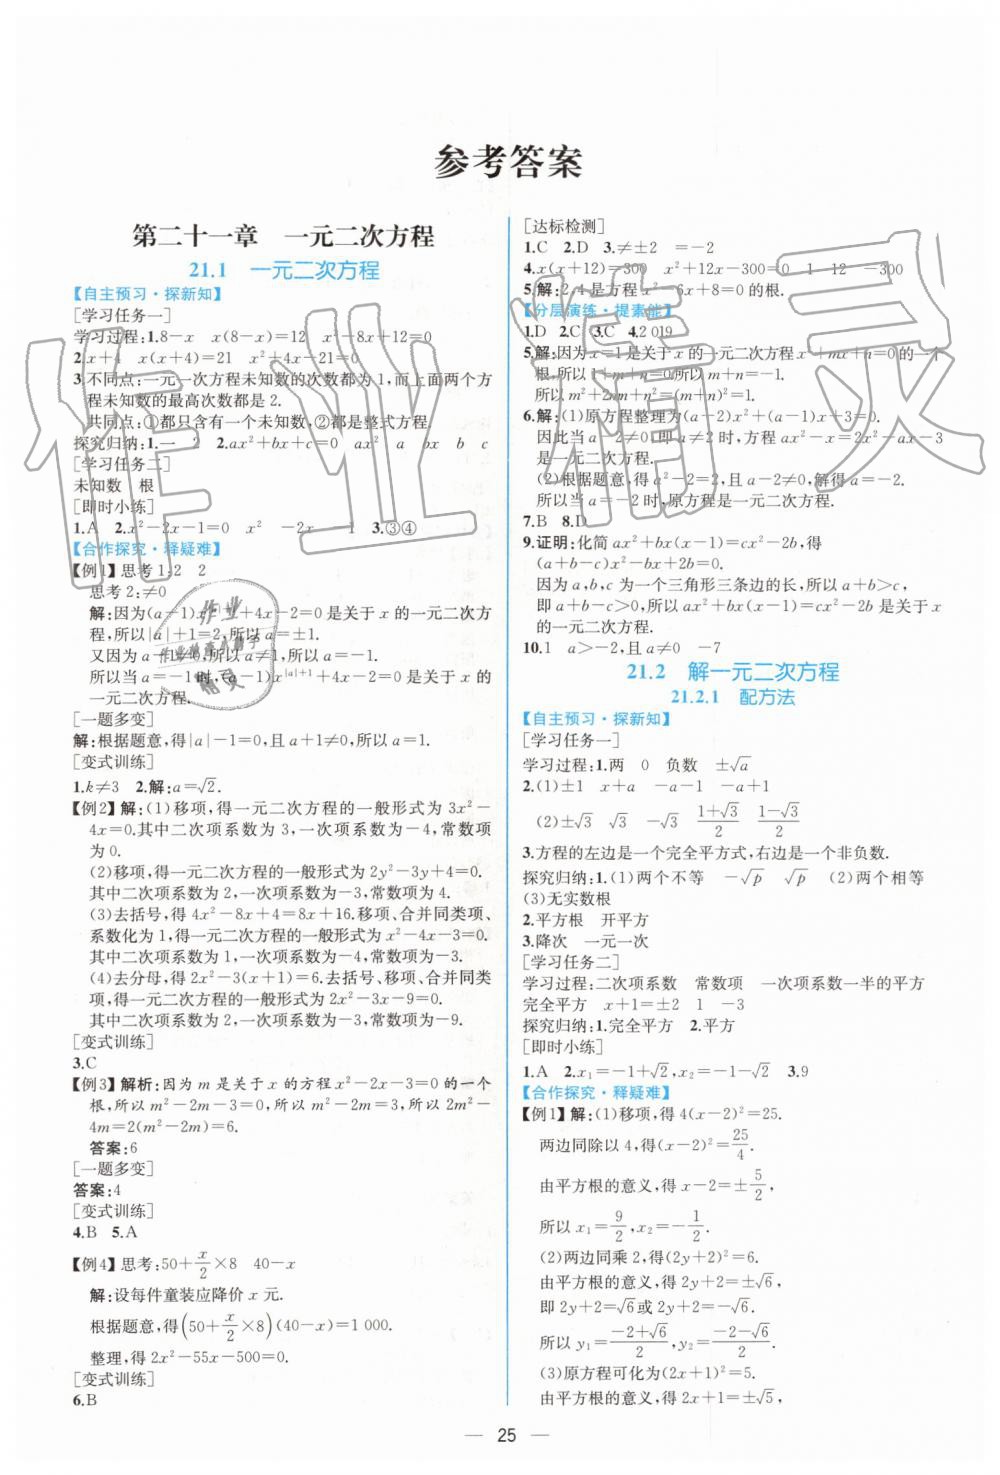 参考答案
第二十一章 一元二次方程
21.1 一元二次方程
【自主预习·探新知】
[学习任务一]
学习过程:1.8-x x(8-x)=12 x²-8x+12=0
2.x+4 x(x+4)=21 x²+4x-21=0
3.不同点:一元一次方程未知数的次数都为1,而上面两个方
程未知数的最高次数都是2.
共同点:①都只含有一个未知数,②都是整式方程.
探究归纳:1.一 2 2.ax²+bx+c=0 ax² a bx b c
[学习任务二]
未知数 根
[即时小练]
1.A 2.x²-2x-1=0 x² -2x -1 3.③④
【合作探究·释疑难】
【例1】思考1:2 2
思考2:≠0
解:因为(a-1)x^{|a|+1}+4x-2=0是关于x的一元二次方
程,所以|a|+1=2,所以a=±1.
又因为a-1≠0,所以a≠1,所以a=-1,
所以当a=-1时,(a-1)x^{|a|+1}+4x-2=0是关于x的
一元二次方程.
[一题多变]
解:根据题意,得|a|-1=0,且a+1≠0,所以a=1.
[变式训练]
1.k≠3 2.解:a=√2.
【例2】解:(1)移项,得一元二次方程的一般形式为3x²-
4x=0.其中二次项系数为3,一次项系数为-4,常数项
为0.
(2)移项,得一元二次方程的一般形式为2y²-3y+4=0.
其中二次项系数为2,一次项系数为-3,常数项为4.
(3)去括号,得4x²-8x+4=8x+16.移项、合并同类项、
系数化为1,得一元二次方程的一般形式为x²-4x-3=0.
其中二次项系数为1,一次项系数为-4,常数项为-3.
(4)去分母,得2x²-3(x+1)=6.去括号、移项、合并同类
项,得一元二次方程的一般形式为2x²-3x-9=0.
其中二次项系数为2,一次项系数为-3,常数项为-9.
[变式训练]
3.C
【例3】解析:因为m是关于x的方程x²-2x-3=0的一个
根,所以m²-2m-3=0,所以m²-2m=3,所以2m²-
4m=2(m²-2m)=6.
答案:6
[一题多变]
答案:4
[变式训练]
4.B 5.A
【例4】思考:50+x/2×8 40-x
解:设每件童装应降价x元.
根据题意,得(50+x/2×8)(40-x)=1 000.
整理,得2x²-55x-500=0.
[变式训练]
6.B
[达标检测]
1.C 2.D 3.≠±2 =-2
4.x(x+12)=300 x²+12x-300=0 1 12 -300
5.解:2,4是方程x²-6x+8=0的根.
【分层演练·提素能】
1.D 2.C 3.C 4.2 019
5.解:因为x=1是关于x的一元二次方程x²+mx+n=0的一个
根,所以1+m+n=0,所以m+n=-1.
所以m²+2mn+n²=(m+n)²=1.
6.解:(1)原方程整理为(a-2)x²+(a-1)x+3=0.
因此当a-2≠0,即a≠2时,方程ax²-x=2x²-ax-3
是一元二次方程.
(2)根据题意,得a²-2=2,且a-2≠0,解得a=-2.
所以当a=-2时,原方程是一元二次方程.
7.B 8.D
9.证明:化简ax²+bx(x-1)=cx²-2b,得
(a+b-c)x²-bx+2b=0.
因为a,b,c为一个三角形三条边的长,所以a+b>c,
即a+b-c>0,所以ax²+bx(x-1)=cx²-2b是关于x
的一元二次方程.
10.1 a>-2,且a≠0 -7
21.2 解一元二次方程
21.2.1 配方法
【自主预习·探新知】
[学习任务一]
学习过程:1.两 0 负数 ±√a
2.(1)±1 x+a -a-1 -a+1
(2)±√3 √3 -√3 (1+√3)/2 (1-√3)/2
3.方程的左边是一个完全平方式,右边是一个非负数.
探究归纳:1.(1)两个不等 -√p √p (2)两个相等
(3)无实数根
2.平方根 开平方
3.降次 一元一次
[学习任务二]
学习过程:二次项系数 常数项 一次项系数一半的平方
完全平方 x+1=±2 1 -3
探究归纳:1.完全平方 2.平方
[即时小练]
1.A 2.x₁=-1+√2,x₂=-1-√2 3.9
【合作探究·释疑难】
【例1】解:(1)移项,得4(x-2)²=25.
两边同除以4,得(x-2)²=25/4.
由平方根的意义,得x-2=±5/2,
所以x₁=9/2,x₂=-1/2.
(2)两边同乘2,得(2y+2)²=6.
由平方根的意义,得2y+2=±√6,
即2y+2=√6或2y+2=-√6.
所以y₁=(-2+√6)/2,y₂=(-2-√6)/2.
(3)原方程可化为(2x+1)²=5.
由平方根的意义,得2x+1=±√5,
— 25 —
作业精灵